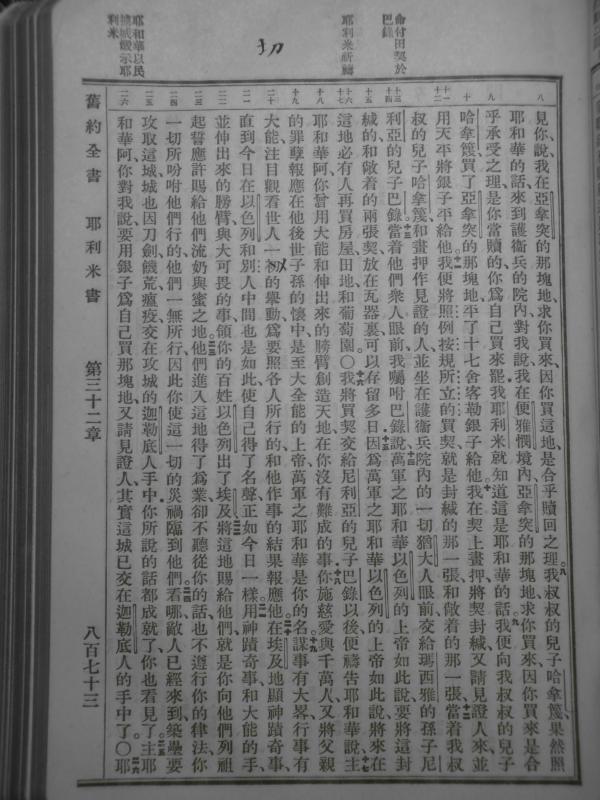 命付田契於
巴錄
耶利米祈禱
切
耶和華以民
利米
見你說我在亞拿突的那塊地求你買來、因你買這地是合乎贖回之理我叔叔的兒子哈拿篾果然照
耶和華的話來到護衛兵的院內對我說我在便雅憫境內亞拿突的那塊地求你買來因你買來是合
乎承受之理是你當贖的你爲自己買來罷我耶利米就知道這是耶和華的話我便向我叔叔的兒子
哈拿篾買了亞拿突的那塊地平了十七舍客勒銀子給他我在契上畫押將契封緘又請見證人來並
用天平將銀子平給他我便將照例按規所立的買契就是封緘的那一張和敞着的那一張當着我叔
叔的兒子哈拿篾和畫押作見證的人並坐在護衛兵院內的一切猶大人眼前交給瑪西雅的孫子尼
利亞的兒子巴錄當着他們衆人眼前我囑咐巴錄說萬軍之耶和華以色列的上帝如此說要將這封
緘的和敞着的兩張契放在瓦器裏可以存留多日因爲萬軍之耶和華以色列的上帝如此說將來在
這地必有人再買房屋田地和葡萄園〇我將買契交給尼利亞的兒子巴錄以後便禱告耶和華說主
耶和華阿你曾用大能和伸出來的膀臂創造天地在你沒有難成的事你施慈愛與千萬人又將父親
的罪孽報應在他後世子孫的懷中是至大全能的上帝萬軍之耶和華是你的名謀事有大畧行事有
大能注目觀看世人一切的舉動爲要照各人所行的和他作事的結果報應他在埃及地顯神蹟奇事
直到今日在以色列和別人中間也是如此使自己得了名聲正如今日一樣用神蹟奇事和大能的手
並伸出來的膀臂與大可畏的事領你的百姓以色列出了埃及將這地賜給他們就是你向他們列祖
起誓應許賜給他們流奶與蜜之地他們進入這地得了爲業卻不聽從你的話也不遵行你的律法你
一切所吩咐他們行的他們一無所行因此你使這一切的災禍臨到他們看哪敵人已經來到築壘要
攻取這城城也因刀劍饑荒瘟疫交在攻城的迦勒底人手中你所說的話都成就了你也看見了主耶
和華阿你對我說要用銀子爲自己買那塊地又請見證人其實這城已交在迦勒底人的手中了〇耶
舊約全書 耶利米書 第三十二章 八百七十三